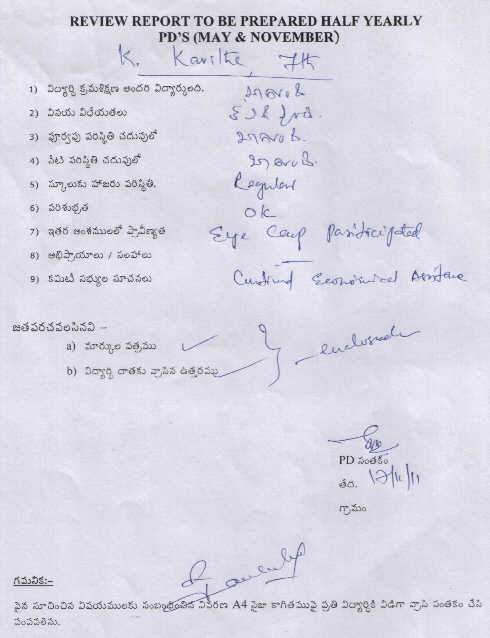 REVIEW REPORT TO BE PREPARED HALF YEARLY
PD'S (MAY & NOVEMBER)
K. Kavitha 7th
1) విద్యార్థి క్రమశిక్షణ అందరి విద్యార్థులది. బాగుంది.
2) వినయ విధేయతలు
3) పూర్వపు పరిస్థితి చదువులో బాగుంది.
4) నేటి పరిస్థితి చదువులో బాగుంది.
5) స్కూలుకు హాజరు పరిస్థితి. Regular
6) పరిశుభ్రత OK
7) ఇతర అంశములలో ప్రావీణ్యత Eye Camp Participated
8) అభిప్రాయాలు / సలహాలు —
9) కమిటీ సభ్యుల సూచనలు Economical Assistance
జతపరచవలసినవి -
a) మార్కుల పత్రము ✓
} - enclosed
b) విద్యార్థి దాతకు వ్రాసిన ఉత్తరము ✓
PD సంతకం
తేది. 12/11/11
గ్రామం
గమనిక:-
పైన సూచించిన విషయములకు సంబంధించిన వివరణ A4 సైజు కాగితముపై ప్రతి విద్యార్థికి విడిగా వ్రాసి సంతకం చేసి
పంపవలెను.